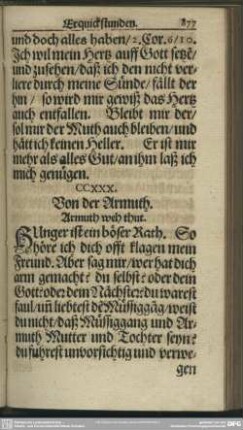 Erquickstunden. 877
und doch alles haben/2. Cor. 6/10.
Ich wil mein Hertz auff Gott setzē/
und zusehen/daß ich den nicht ver-
liere durch meine Sünde/fällt der
hin/ so wird mir gewiß das Hertz
auch entfallen. Bleibt mir der/
sol mir der Muth auch bleiben/und
hätt ich keinen Heller. Er ist mir
mehr als alles Gut/an ihm laß ich
mich genügen.
CCXXX.
Von der Armuth.
Armuth weh thut.
HUnger ist ein böser Rath. So
höre ich dich offt klagen mein
Freund. Aber sag mir/wer hat dich
arm gemacht? du selbst? oder dein
Gott? oder dein Nächster? du warest
faul/uñ liebtest dē Müssiggāg/weist
du nicht/daß Müssiggang und Ar-
muth Mutter und Tochter seyn?
du fuhrest unvorsichtig und verwe-
gen